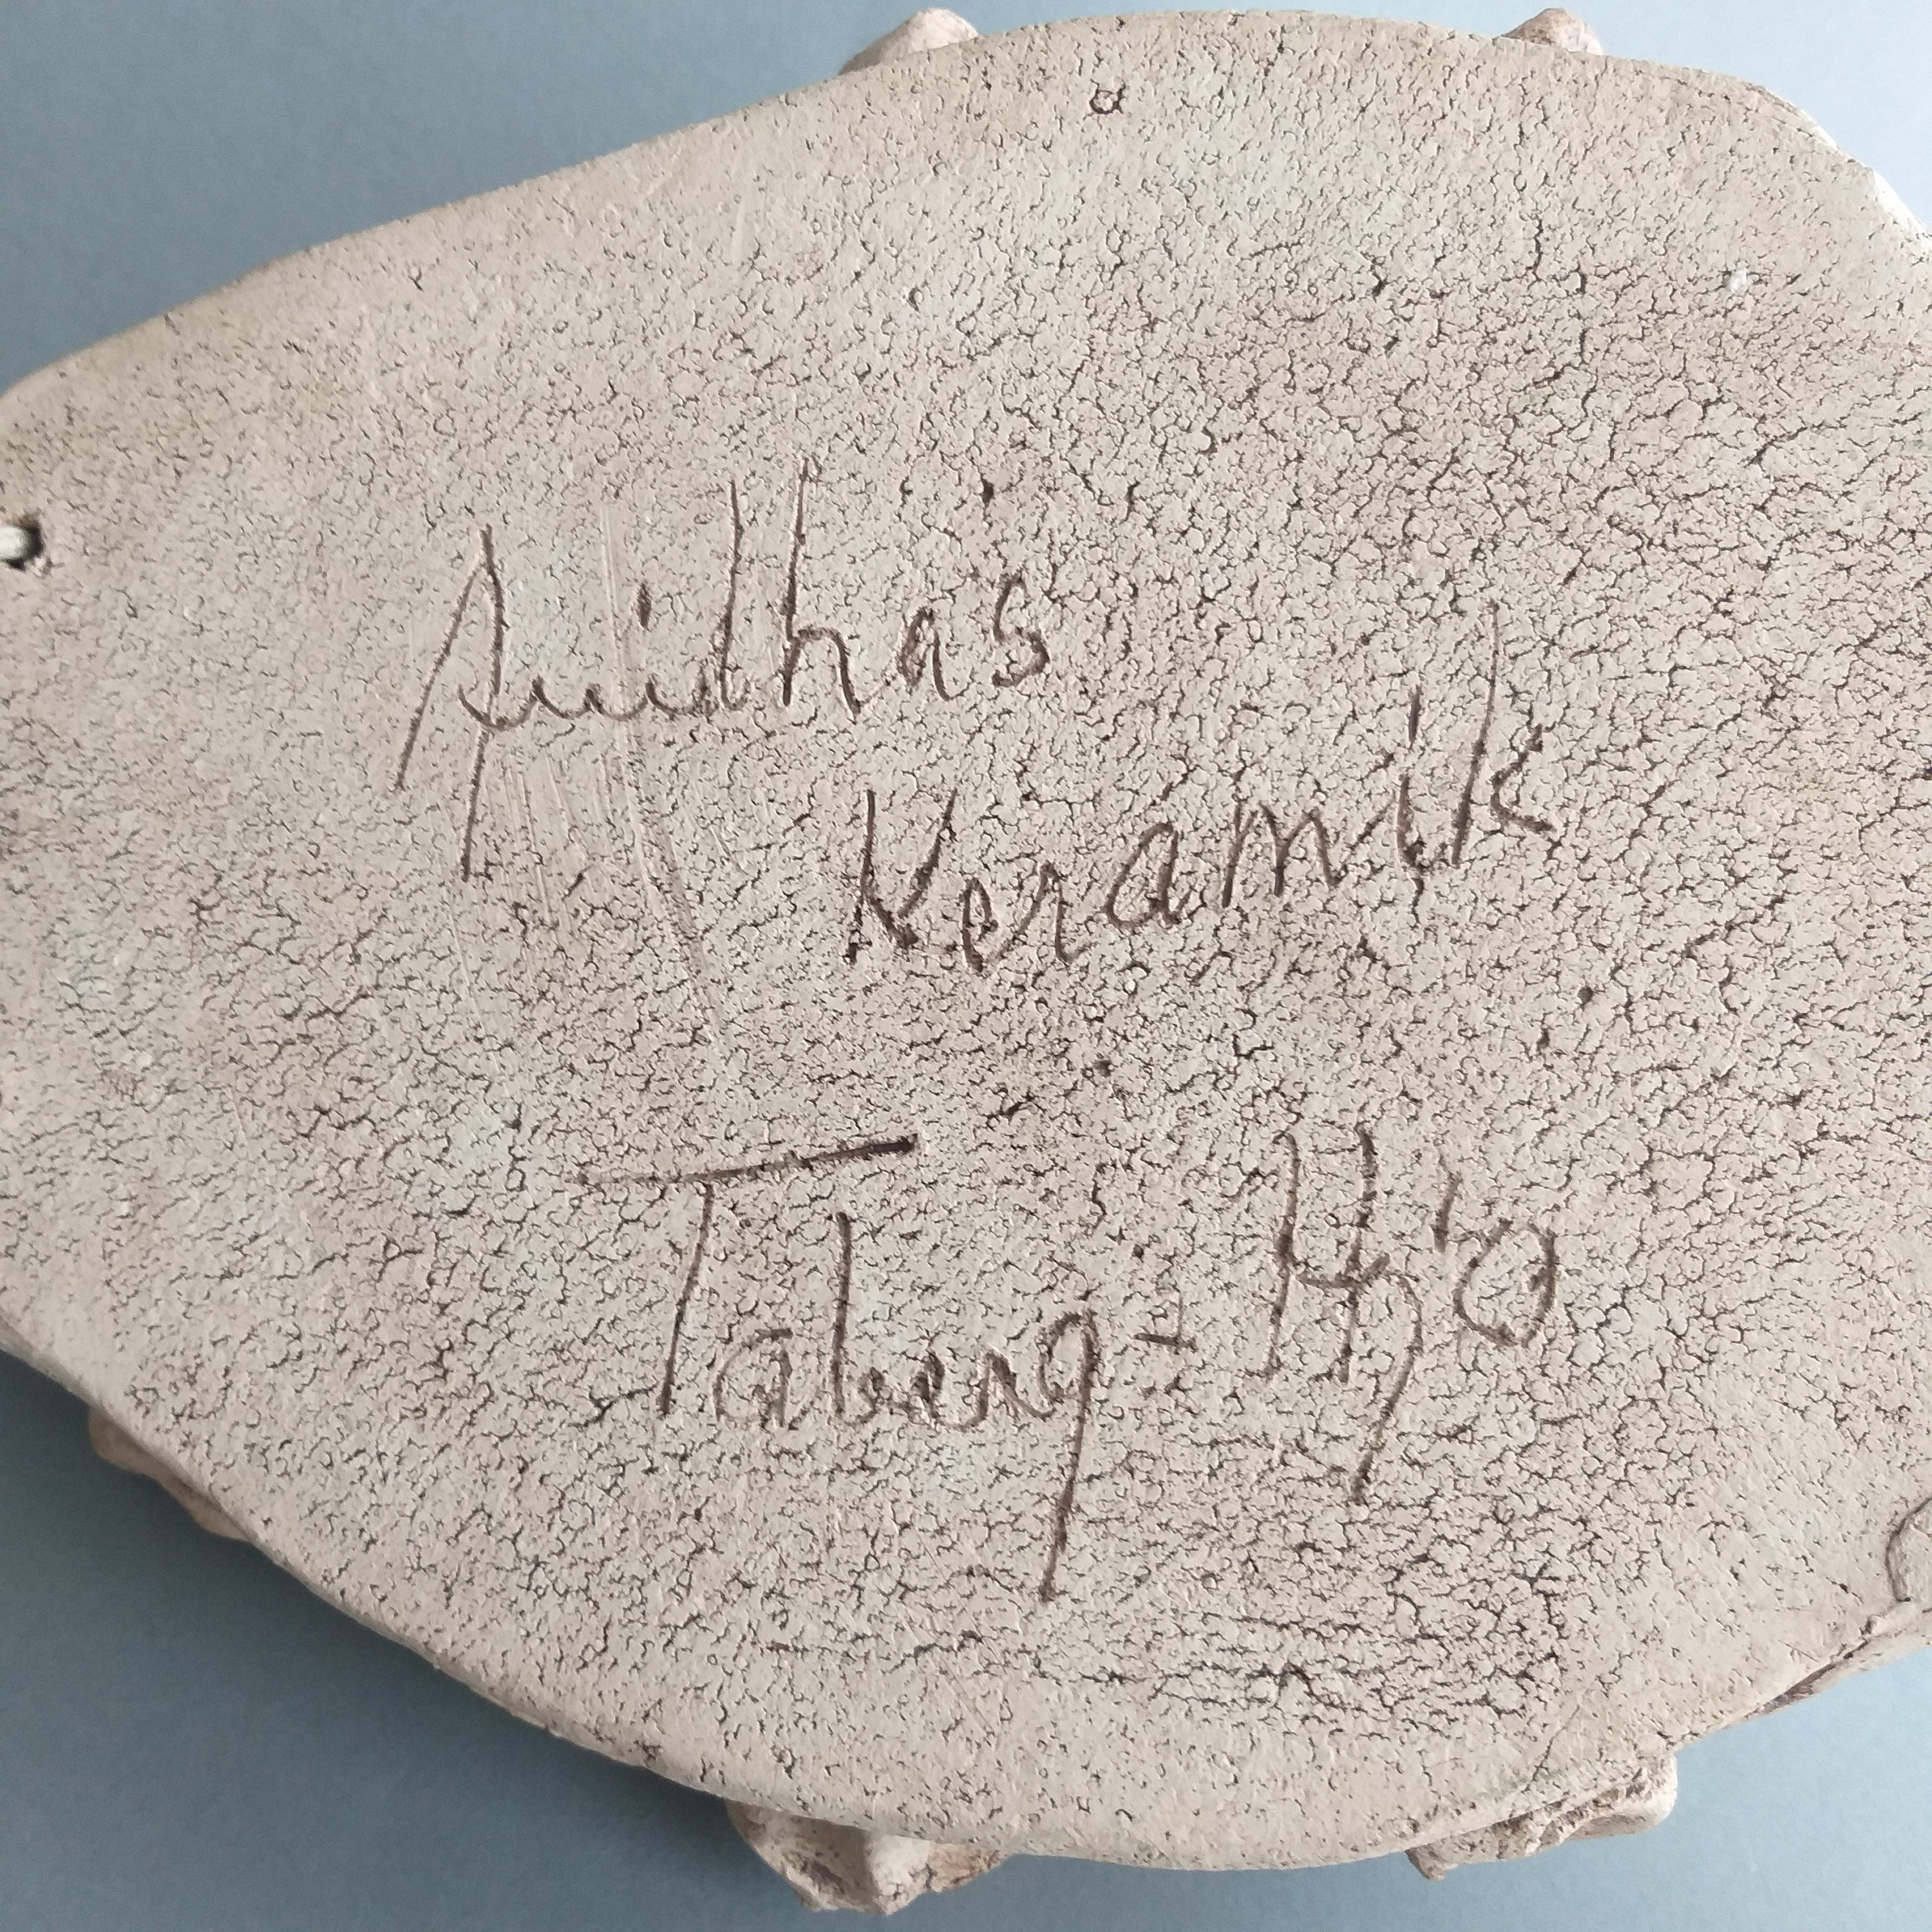 Anithas
Keramik
Taberg - Hjo